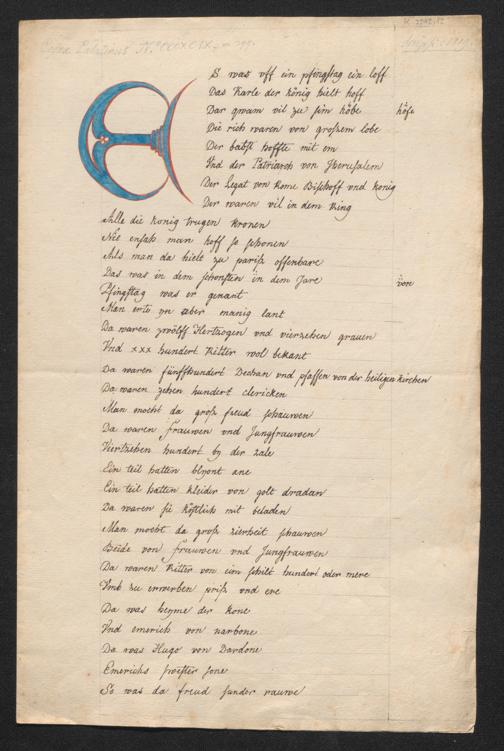 Codex Palatinus N.º CCCXCIX
ES was vff ein pfingstag ein loff
Das Karle der könig hielt hoff
Dar qwam vil zu sim höbe höfe
Die rich waren von großem lobe
Der babst hoffte mit em
Vnd der Patriarch von Jherusalem
Der Legat von Rome Bischoff vnd konig
Der waren vil in dem Ring
Alle die konig trugen kronen
Nÿe ensah man hoff so schonen
Als man da hielt zu pariß offenbare
Das was in dem schonsten in dem Jare
Pfingstag was er genant von
Man erte yn uber manig lant
Da waren zwölff Hertzogen vnd vierzehen grauen
Vnd xxx hundert Ritter wol bekant
Da waren fünffhundert Dechan vnd pfaffen von der heiligen kirchen
Da waren zehen hundert clericken
Man mocht da groß freud schauwen
Da waren frauwen vnd Jungfrauwen
Viertzehen hundert by der zale
Ein teil hatten blyont ane
Ein teil hatten kleider von golt dradan
Da waren sie köstlich mit beladen
Man mocht da groß zierheit schauwen
Beide von frauwen vnd Jungfrauwen
Da waren Ritter von eim schilt hundert oder mere
Vmb zu erwerben priß vnd ere
Da was heyme der kone
Vnd emerich von narbone
Da was Hugo von Dardone
Emerichs swester sone
So was da freud sunder rauwe